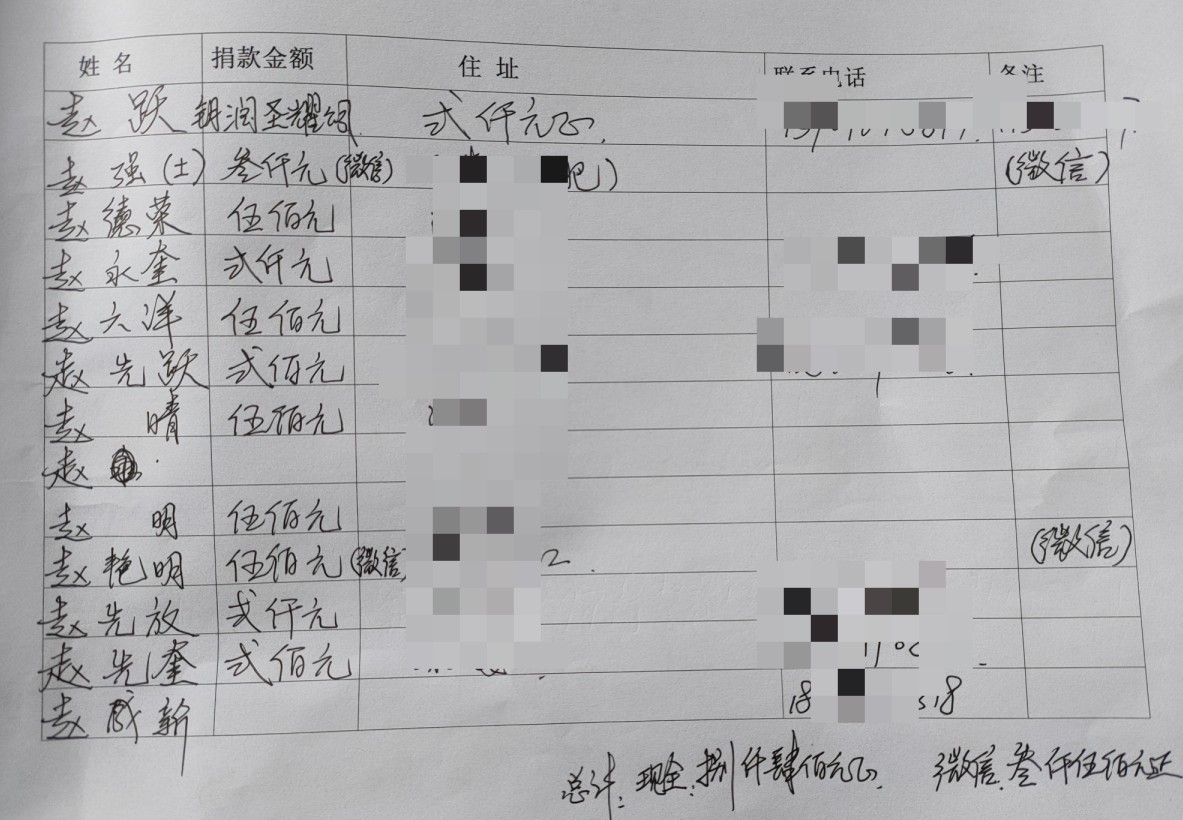 姓名 捐款金额 住址 联系电话 备注
赵跃 钥润圣耀 弍仟元正
赵强(士) 叁仟元(微信) 吧) (微信)
赵德荣 伍佰元
赵永奎 弍仟元
赵六洋 伍佰元
赵先跃 弍佰元
赵晴 伍佰元
赵
赵明 伍佰元
赵艳明 伍佰元(微信) (微信)
赵先放 弍仟元
赵先奎 弍佰元
赵成新 18 18
总计:现金:捌仟肆佰元正. 微信.叁仟伍佰元正